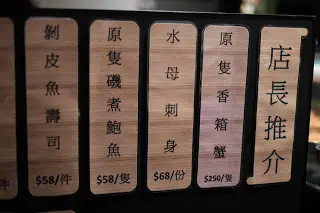 店長推介
原隻香箱蟹
$250/隻
水母刺身
$68/份
原隻磯煮鮑魚
$58/隻
剝皮魚壽司
$58/件